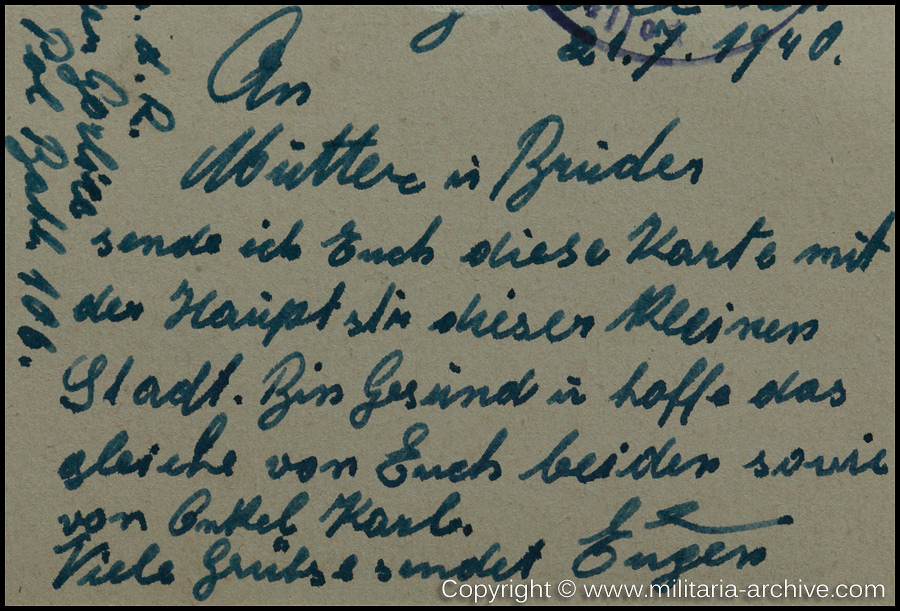 21.7.1940.
An
Mutter u Bruder
sende ich Euch diese Karte mit
der Hauptstr dieser kleinen
Stadt. Bin Gesund u hoffe das
gleiche von Euch beiden sowie
von Onkel Karl.
Viele Grüsse sendet Eugen
d. R.
Pol Batl 106.
Copyright © www.militaria-archive.com